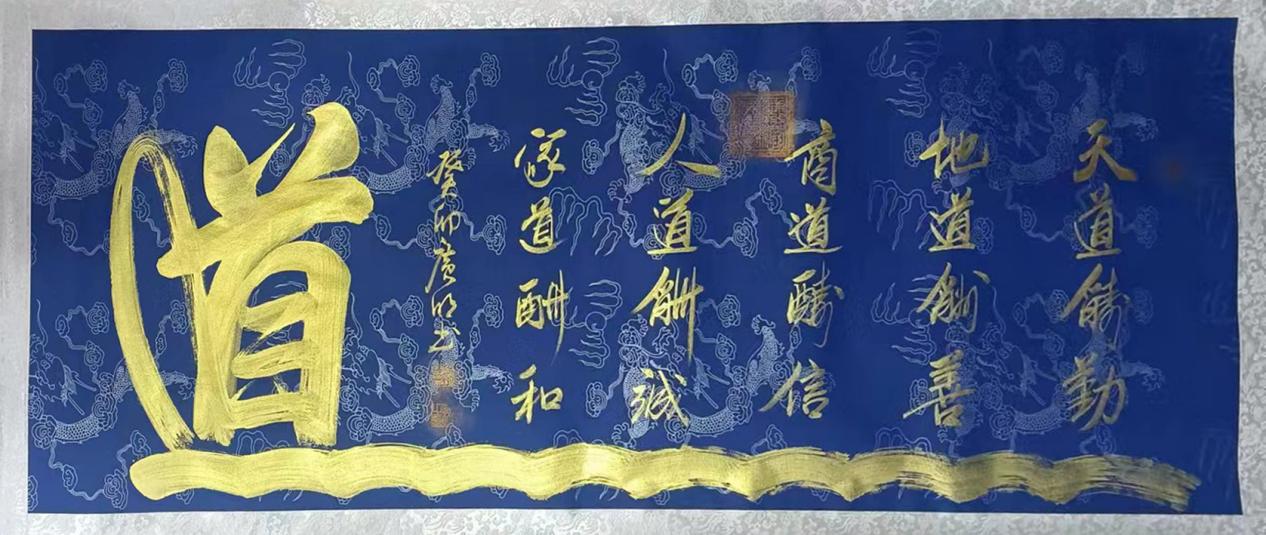 天道酬勤
地道酬善
商道酬信
人道酬誠
家道酬和
癸卯廣明书
道